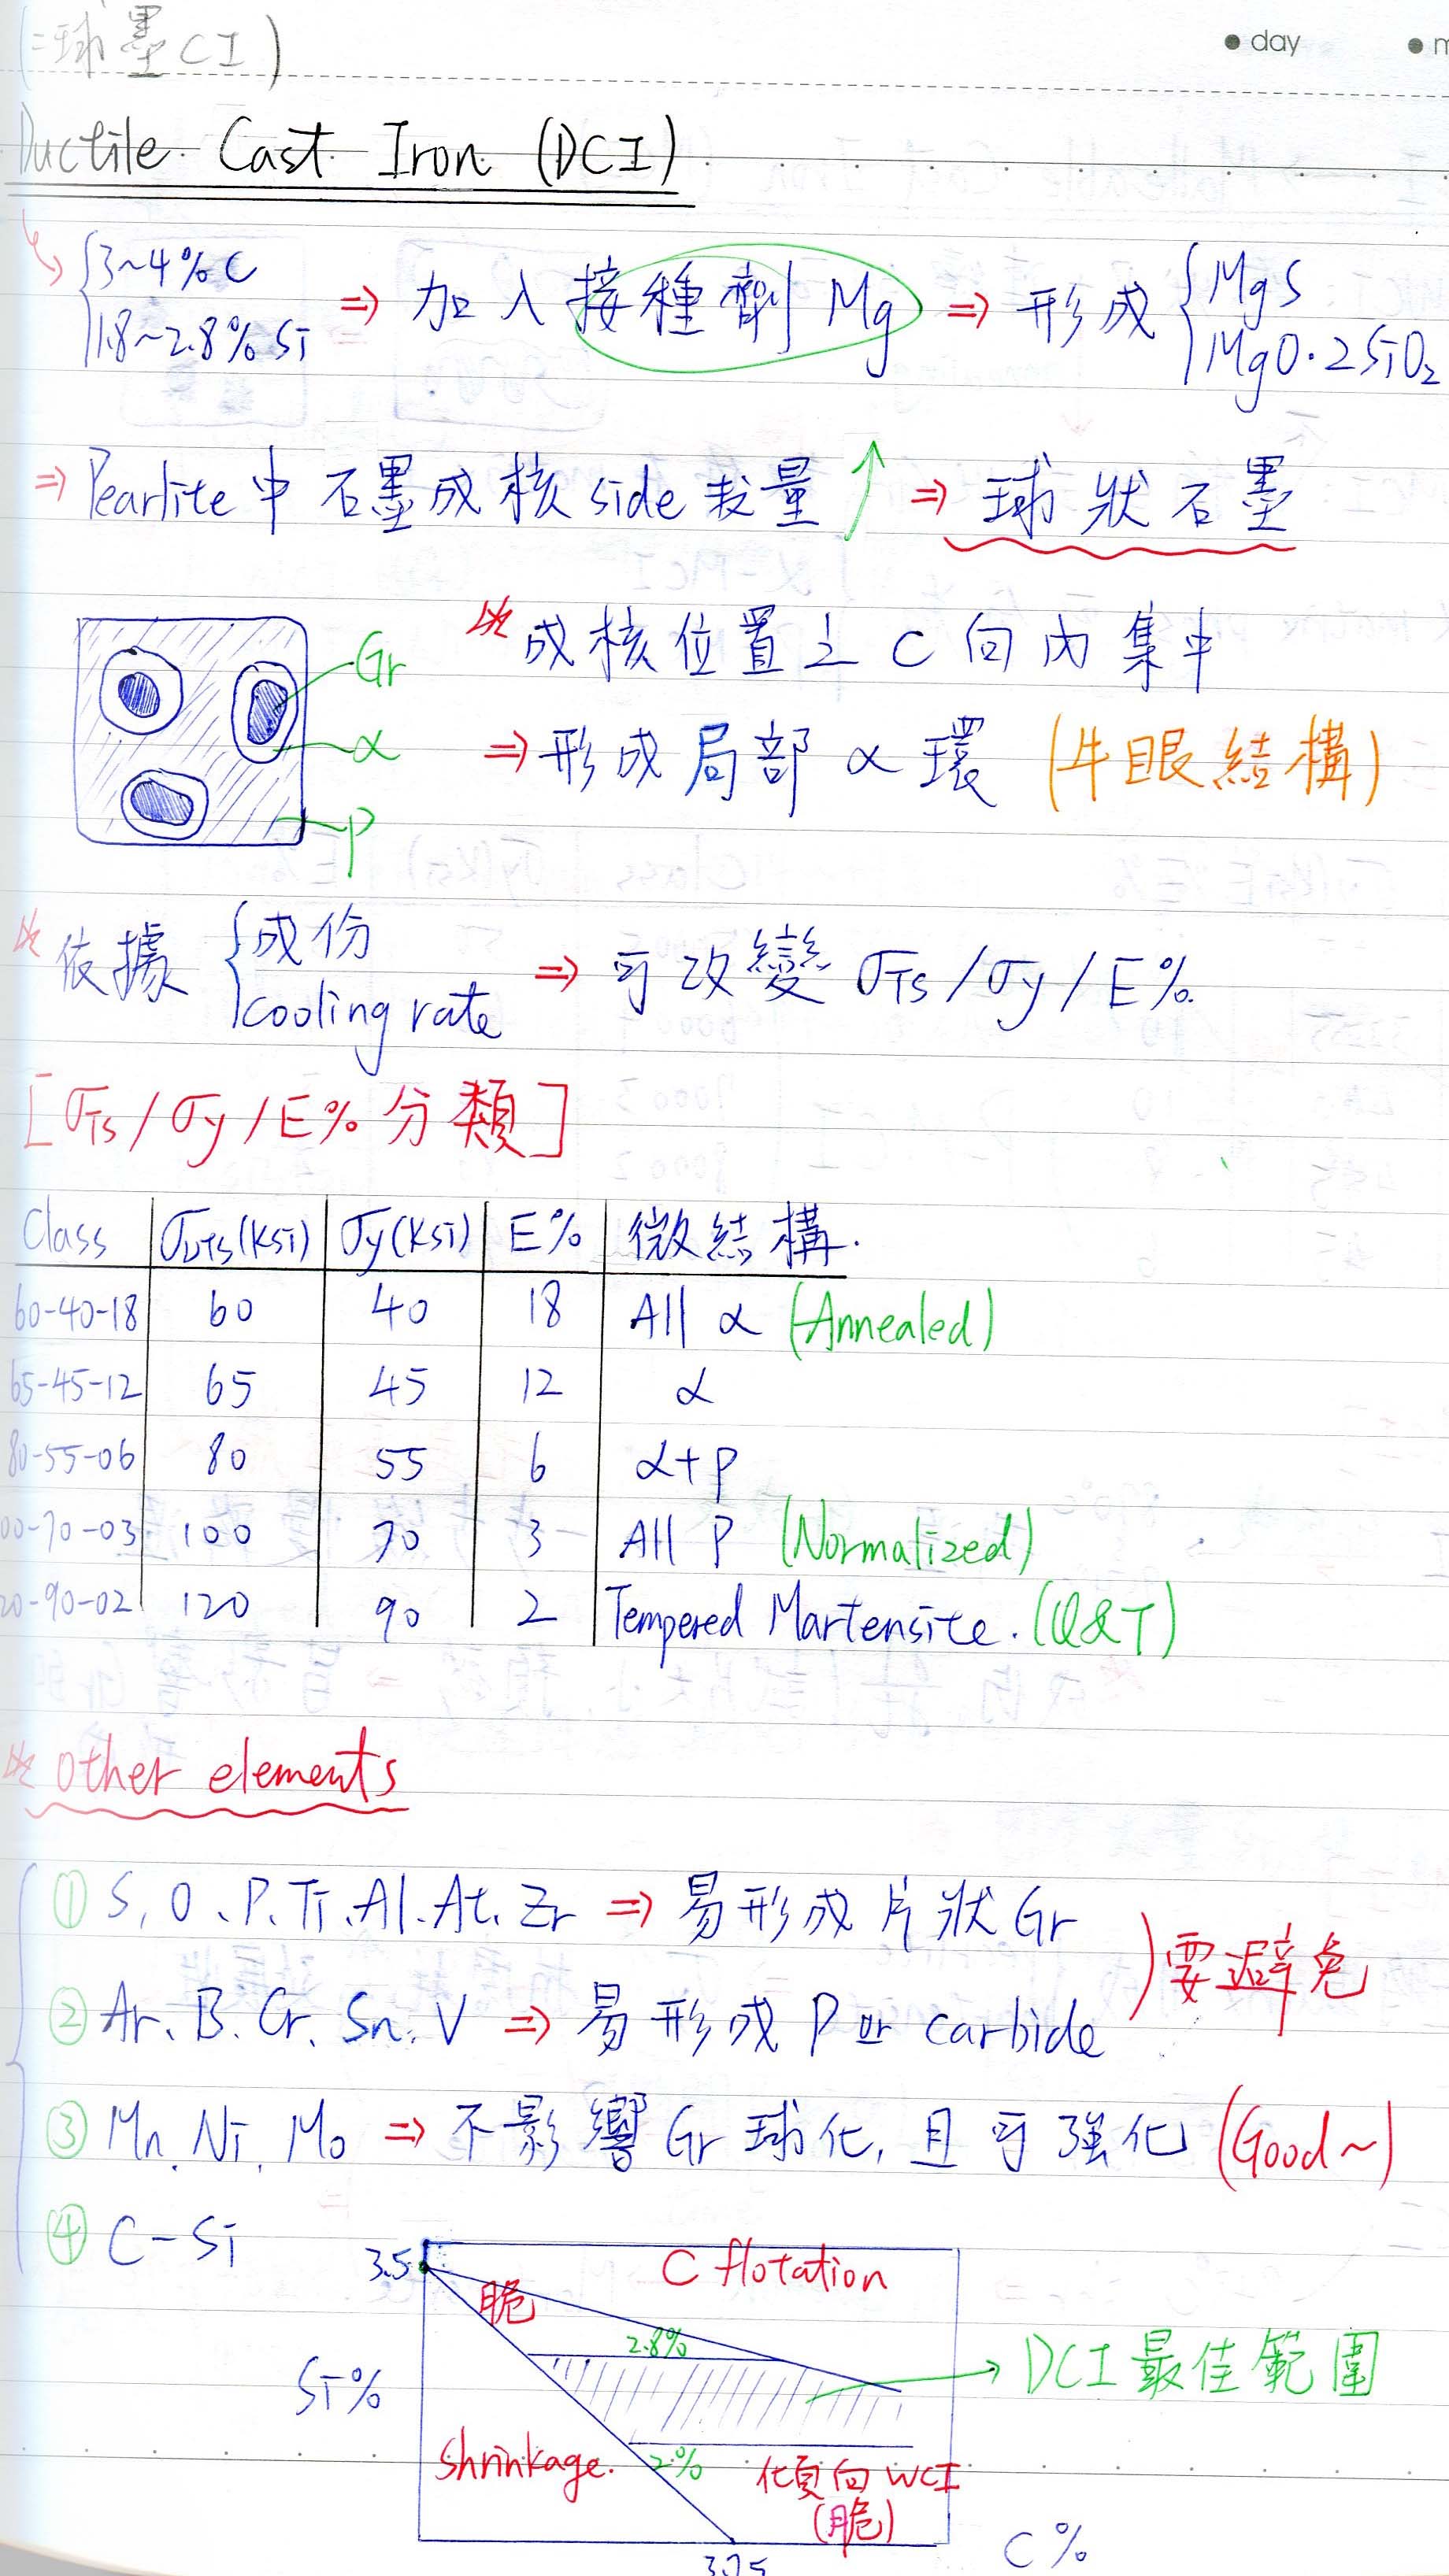 (=球墨CI)
day
Ductile Cast Iron (DCI)
3~4% C
1.8~2.8% Si
⇒ 加入接種劑 Mg ⇒ 形成
MgS
MgO·2SiO₂
⇒ Pearlite中石墨成核side數量↑ ⇒ 球狀石墨
Gr
α
P
※成核位置之C向內集中
⇒形成局部α環 (牛眼結構)
※依據
成份
cooling rate
⇒ 可改變 σTS/σy/E%
[σTS/σy/E%分類]
Class σUTS(ksi) σy(ksi) E% 微結構
60-40-18 60 40 18 All α (Annealed)
65-45-12 65 45 12 α
80-55-06 80 55 6 α+P
00-70-03 100 70 3 All P (Normalized)
20-90-02 120 90 2 Tempered Martensite. (Q&T)
※ other elements
① S, O、P、Ti、Al、At、Zr ⇒ 易形成片狀Gr
② Ar、B、Cr、Sn、V ⇒ 易形成 P or carbide
要避免
③ Mn、Ni、Mo ⇒ 不影響Gr球化,且可強化 (Good~)
④ C-Si
3.5
C flotation
脆
2.8%
DCI最佳範圍
Si%
shrinkage.
2%
傾向WCI
(脆)
3.75
C%